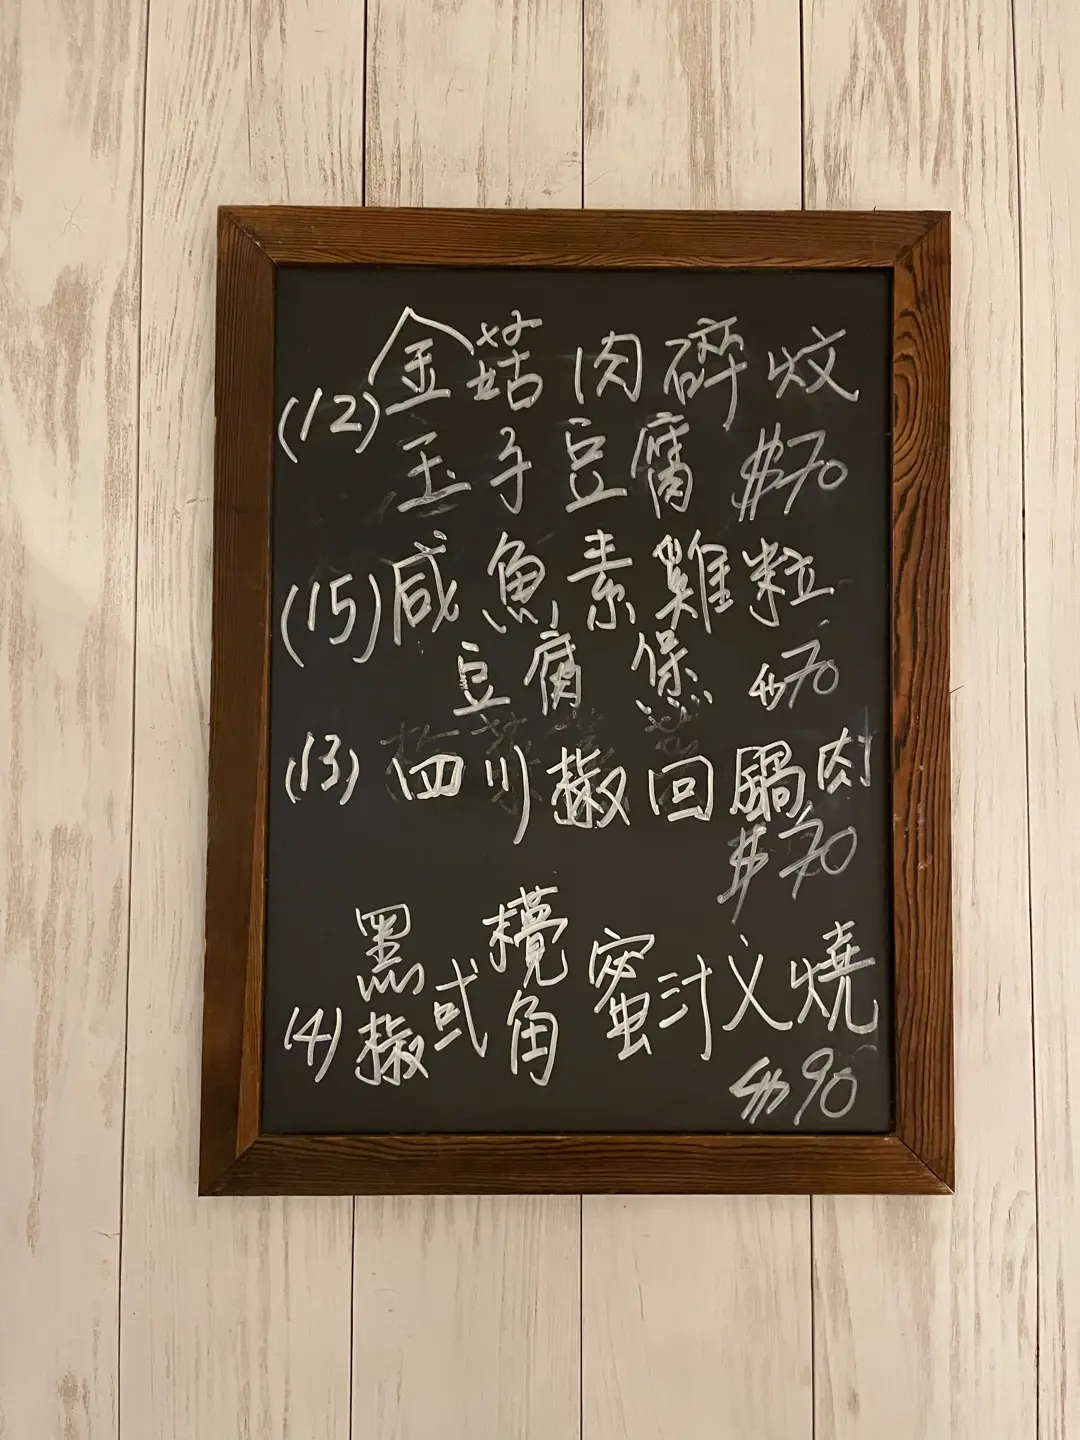 (12) 金菇肉碎炆
玉子豆腐 $70
(15) 咸魚素雞粒
豆腐煲 $70
(13) 四川椒回鍋肉
$70
(4) 黑椒或欖角蜜汁义燒
$90